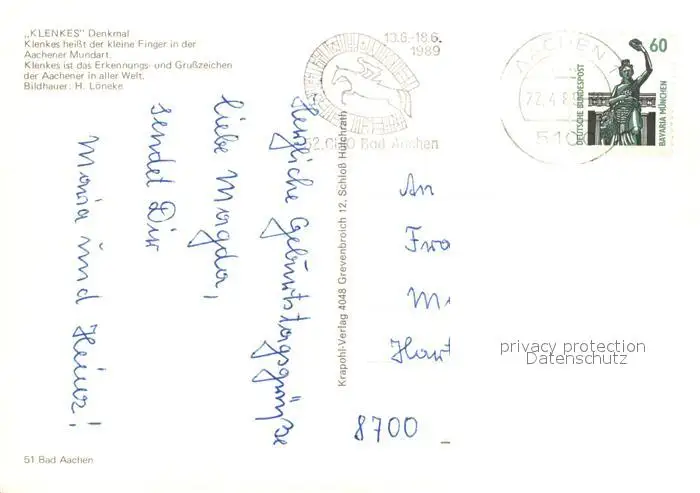 „KLENKES" Denkmal
Klenkes heißt der kleine Finger in der
Aachener Mundart.
Klenkes ist das Erkennungs- und Grußzeichen
der Aachener in aller Welt.
Bildhauer: H. Löneke
13.6.-18.6.
1989
52. CHIO Bad Aachen
AACHEN 1
22.4.8
510
60
DEUTSCHE BUNDESPOST
BAYARIA MÜNCHEN
Herzliche Geburtstagsgrüße
liebe Magda,
sendet Dir
Maria und Heinz!
Krapohl-Verlag 4048 Grevenbroich 12, Schloß Hülchrath
An
Fra
M
Hau
8700
privacy protection
Datenschutz
51 Bad Aachen